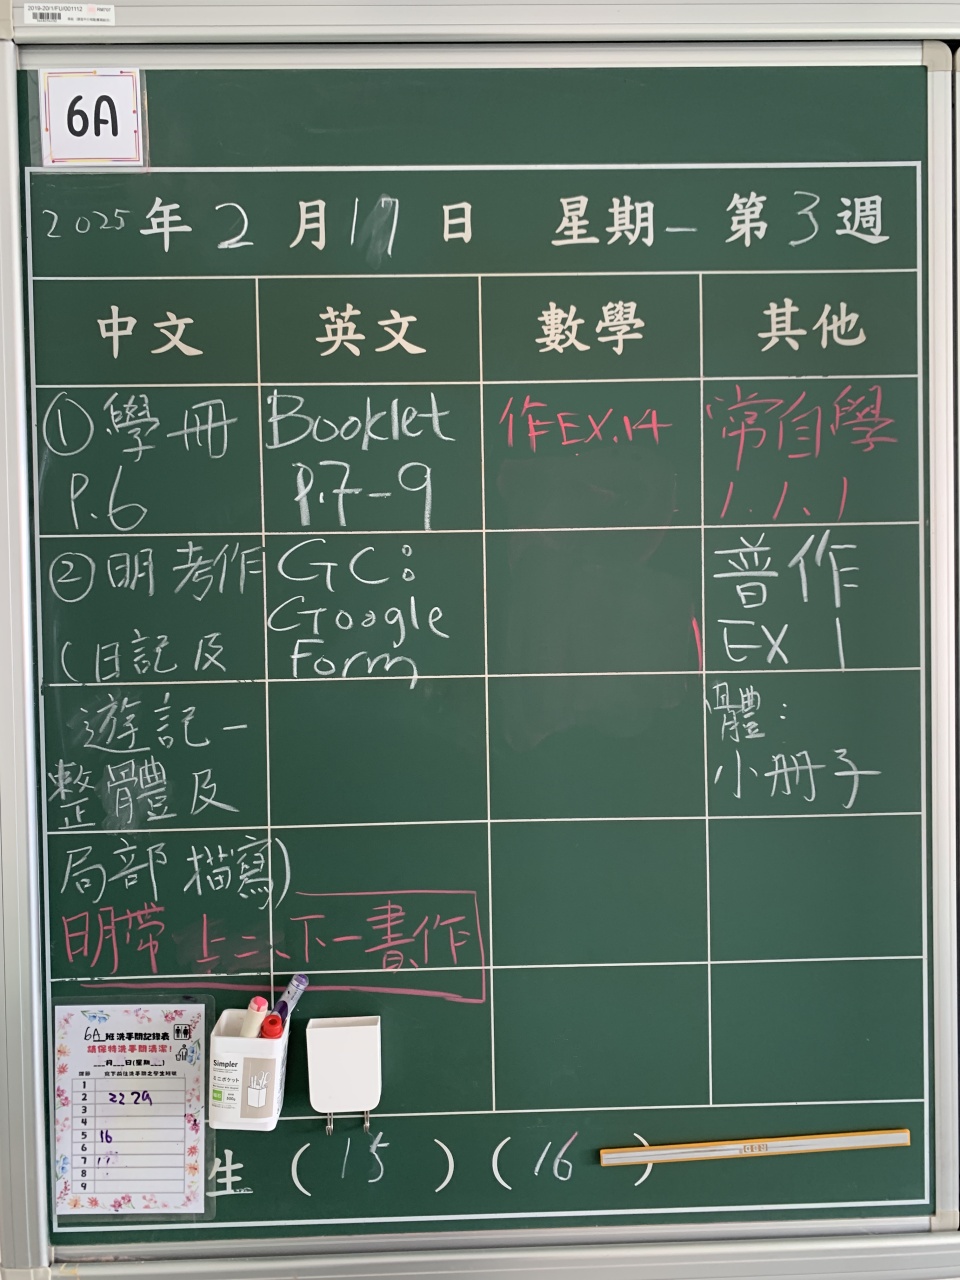 2019-20/1/FU/001112
6A
2025年2月17日 星期一 第3週
中文 英文 數學 其他
①學冊
P.6
②明考作
(日記及
遊記一
整體及
局部描寫)
明帶上二、下一書、作
Booklet
P.7-9
GC:
Google
Form
作EX.14
常自學
1.1、1
普作
EX 1
體:
小冊子
6A班洗手間記錄表
請保持洗手間清潔!
___月___日(星期___)
1
2 22 29
3
4
5 16
6
7 11
8
9
Simpler
ミニポケット
生 (15) (16)